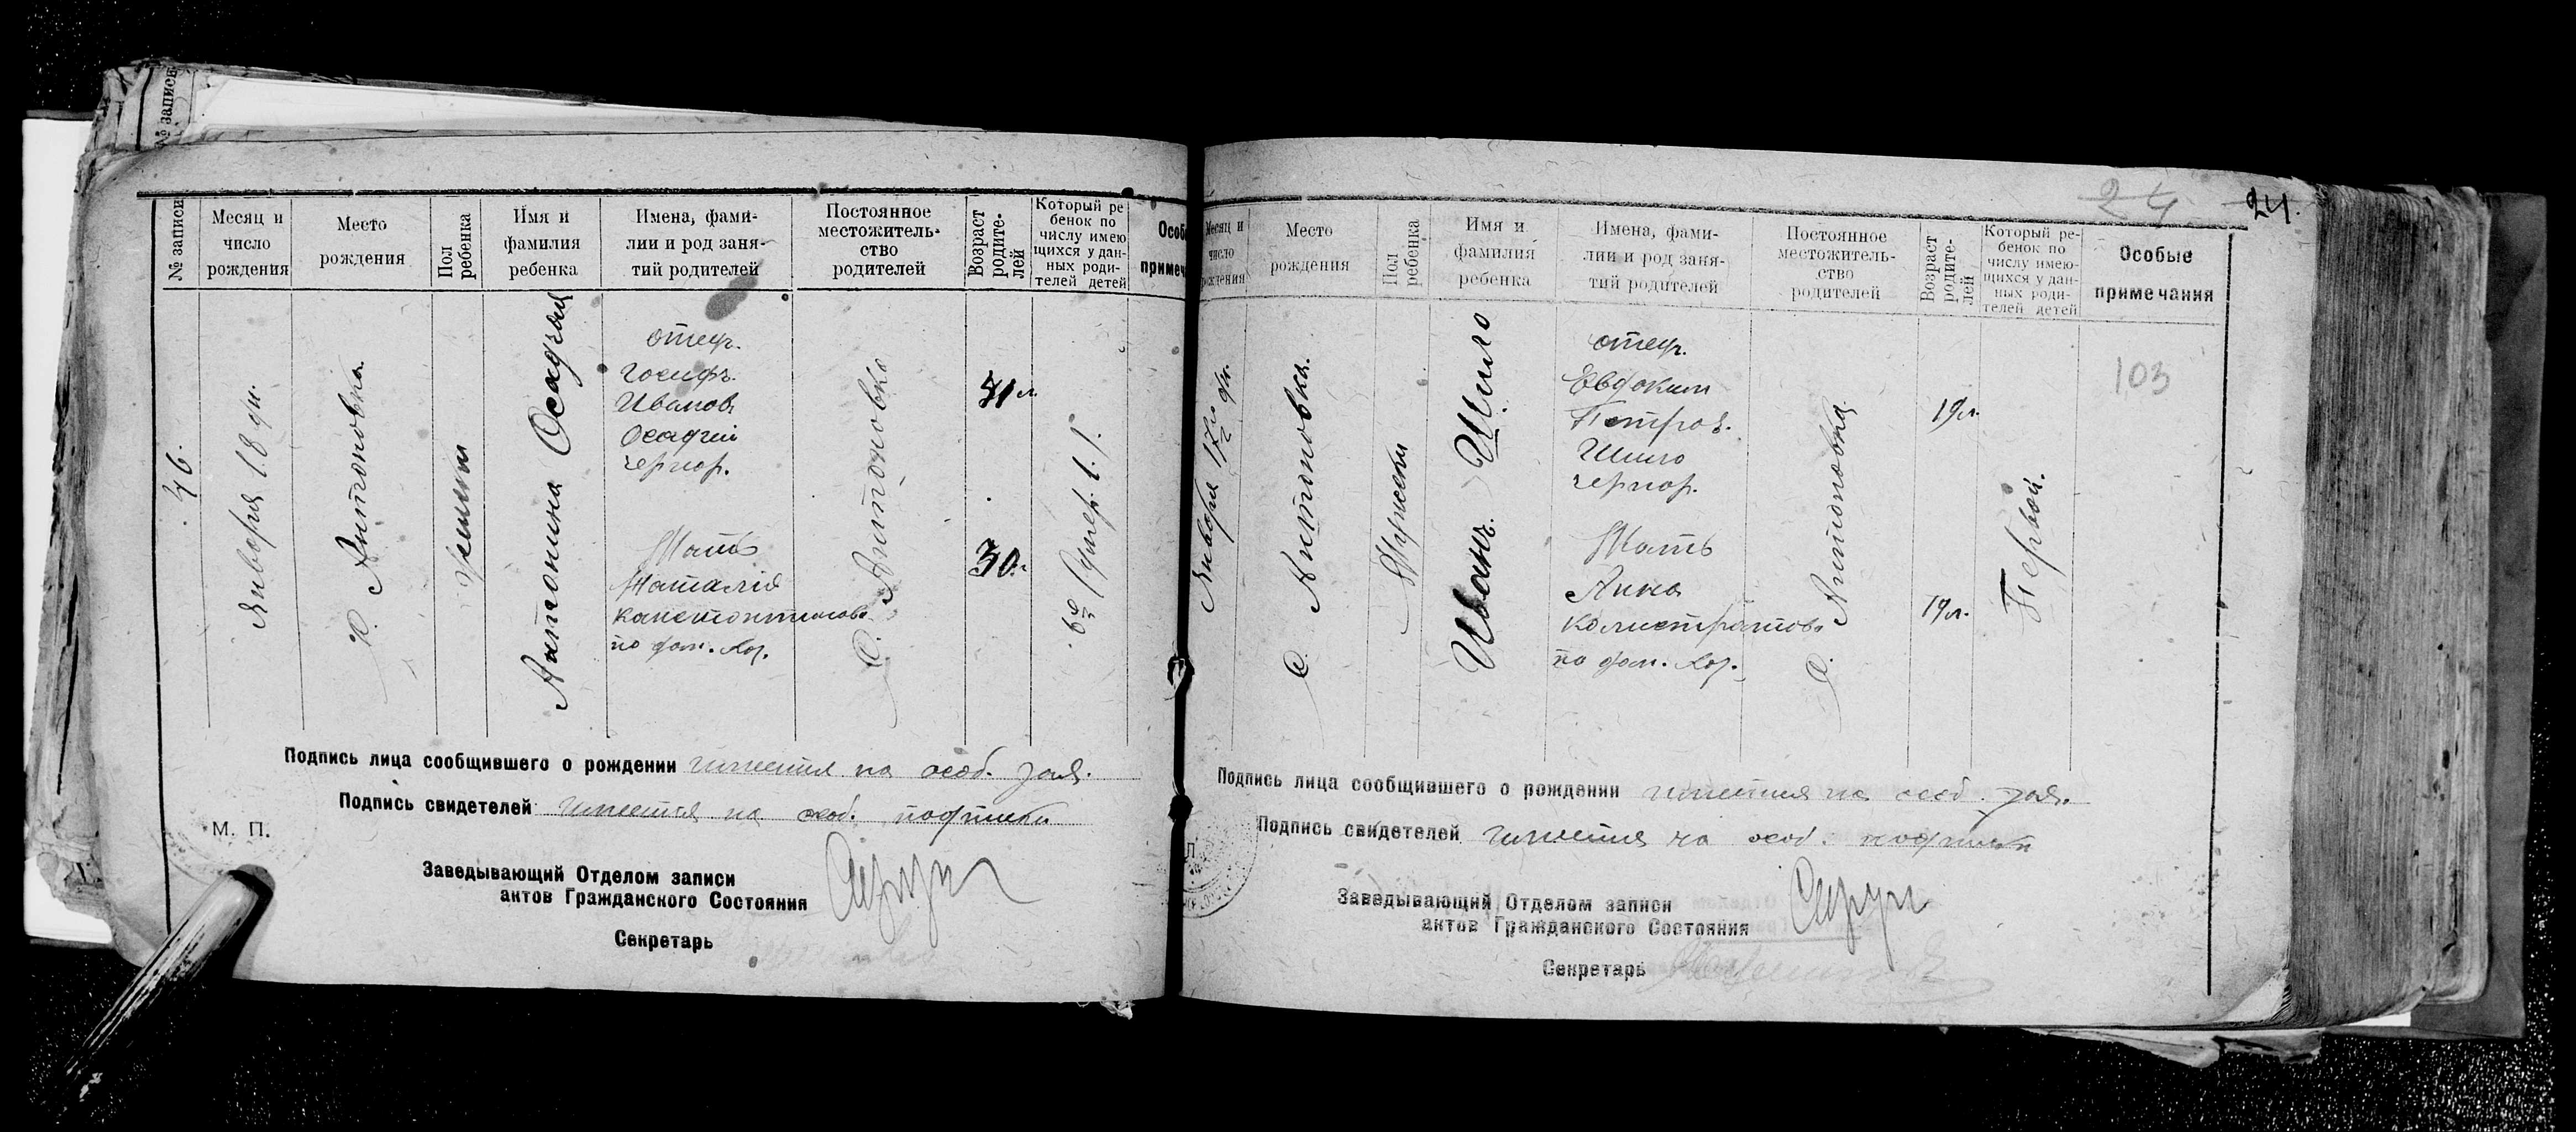 № записи
№ записи
Месяц и
число
рождения
Место
рождения
Пол
ребенка
Имя и
фамилия
ребенка
Имена, фами-
лии и род заня-
тий родителей
Постоянное
местожитель-
ство
родителей
Возраст
родите-
лей
Который ре
бенок по
числу имею
щихся у дан-
ных роди-
телей детей
Особ
примеч
46.
Января 18 дн.
С. Антоновка.
женск
Антонина Осадчая
отец.
Иосифъ.
Иванов
Осадчий
чернор.
Мать
Наталія
Константинова
по дом. хоз.
С. Антоновка
41 л.
30 л.
6й (умер. 1.)
Подпись лица сообщившего о рождении имеется на особ. заяв.
Подпись свидетелей имеется на особ. подписки
М. П.
Заведывающий Отделом записи
актов Гражданского Состояния
Секретарь
24
24.
Месяц и
число
рождения
Место
рождения
Пол
ребенка
Имя и
фамилия
ребенка
Имена, фами-
лии и род заня-
тий родителей
Постоянное
местожитель-
ство
родителей
Возраст
родите-
лей
Который ре-
бенок по
числу имею-
щихся у дан-
ных роди-
телей детей
Особые
примечания
Января 17го дн.
С. Антоновка.
Мужеск
Иванъ. Шило
отец.
Евдоким
Петров.
Шило
чернор.
Мать
Анна
Калистратов
по дом. хоз.
С. Антоновка
19 л.
19 л.
Первой.
103
Подпись лица сообщившего о рождении имеется на особ. заяв.
Подпись свидетелей имеется на особ. подписки
Заведывающий Отделом записи
актов Гражданского Состояния
Секретарь